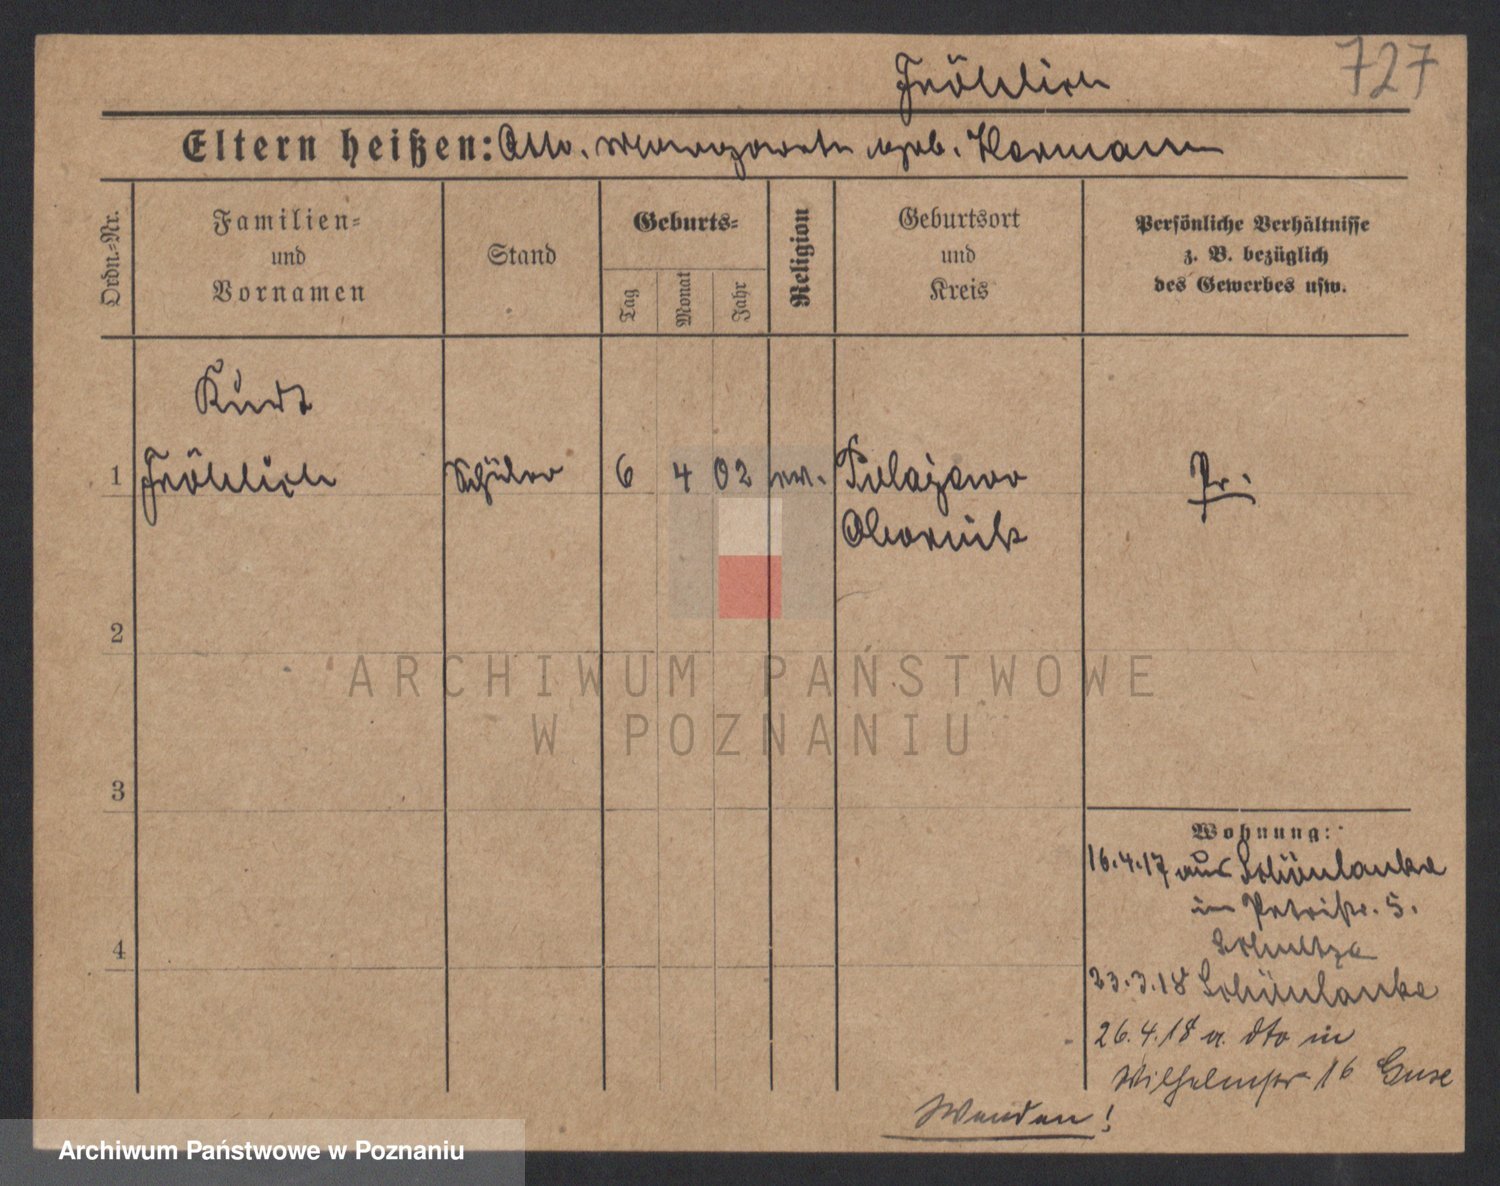 Fröhlich
727
Eltern heißen: Otto. Margarete geb. Hermann
Ordn.-Nr.
Familien-
und
Vornamen
Stand
Geburts-
Tag
Monat
Jahr
Religion
Geburtsort
und
Kreis
Persönliche Verhältnisse
z. B. bezüglich
des Gewerbes usw.
Kurt
1 Fröhlich Schüler 6 4 02 ev. Polajewo Pr.
Obornik
2
3
4
Wohnung:
16.4.17 aus Schönlanke
in Petristr. 5.
Schultze
23.3.18 Schönlanke
26.4.18 a. dto in
Wilhelmstr 16 Guse
Wenden!
ARCHIWUM PAŃSTWOWE
W POZNANIU
Archiwum Państwowe w Poznaniu